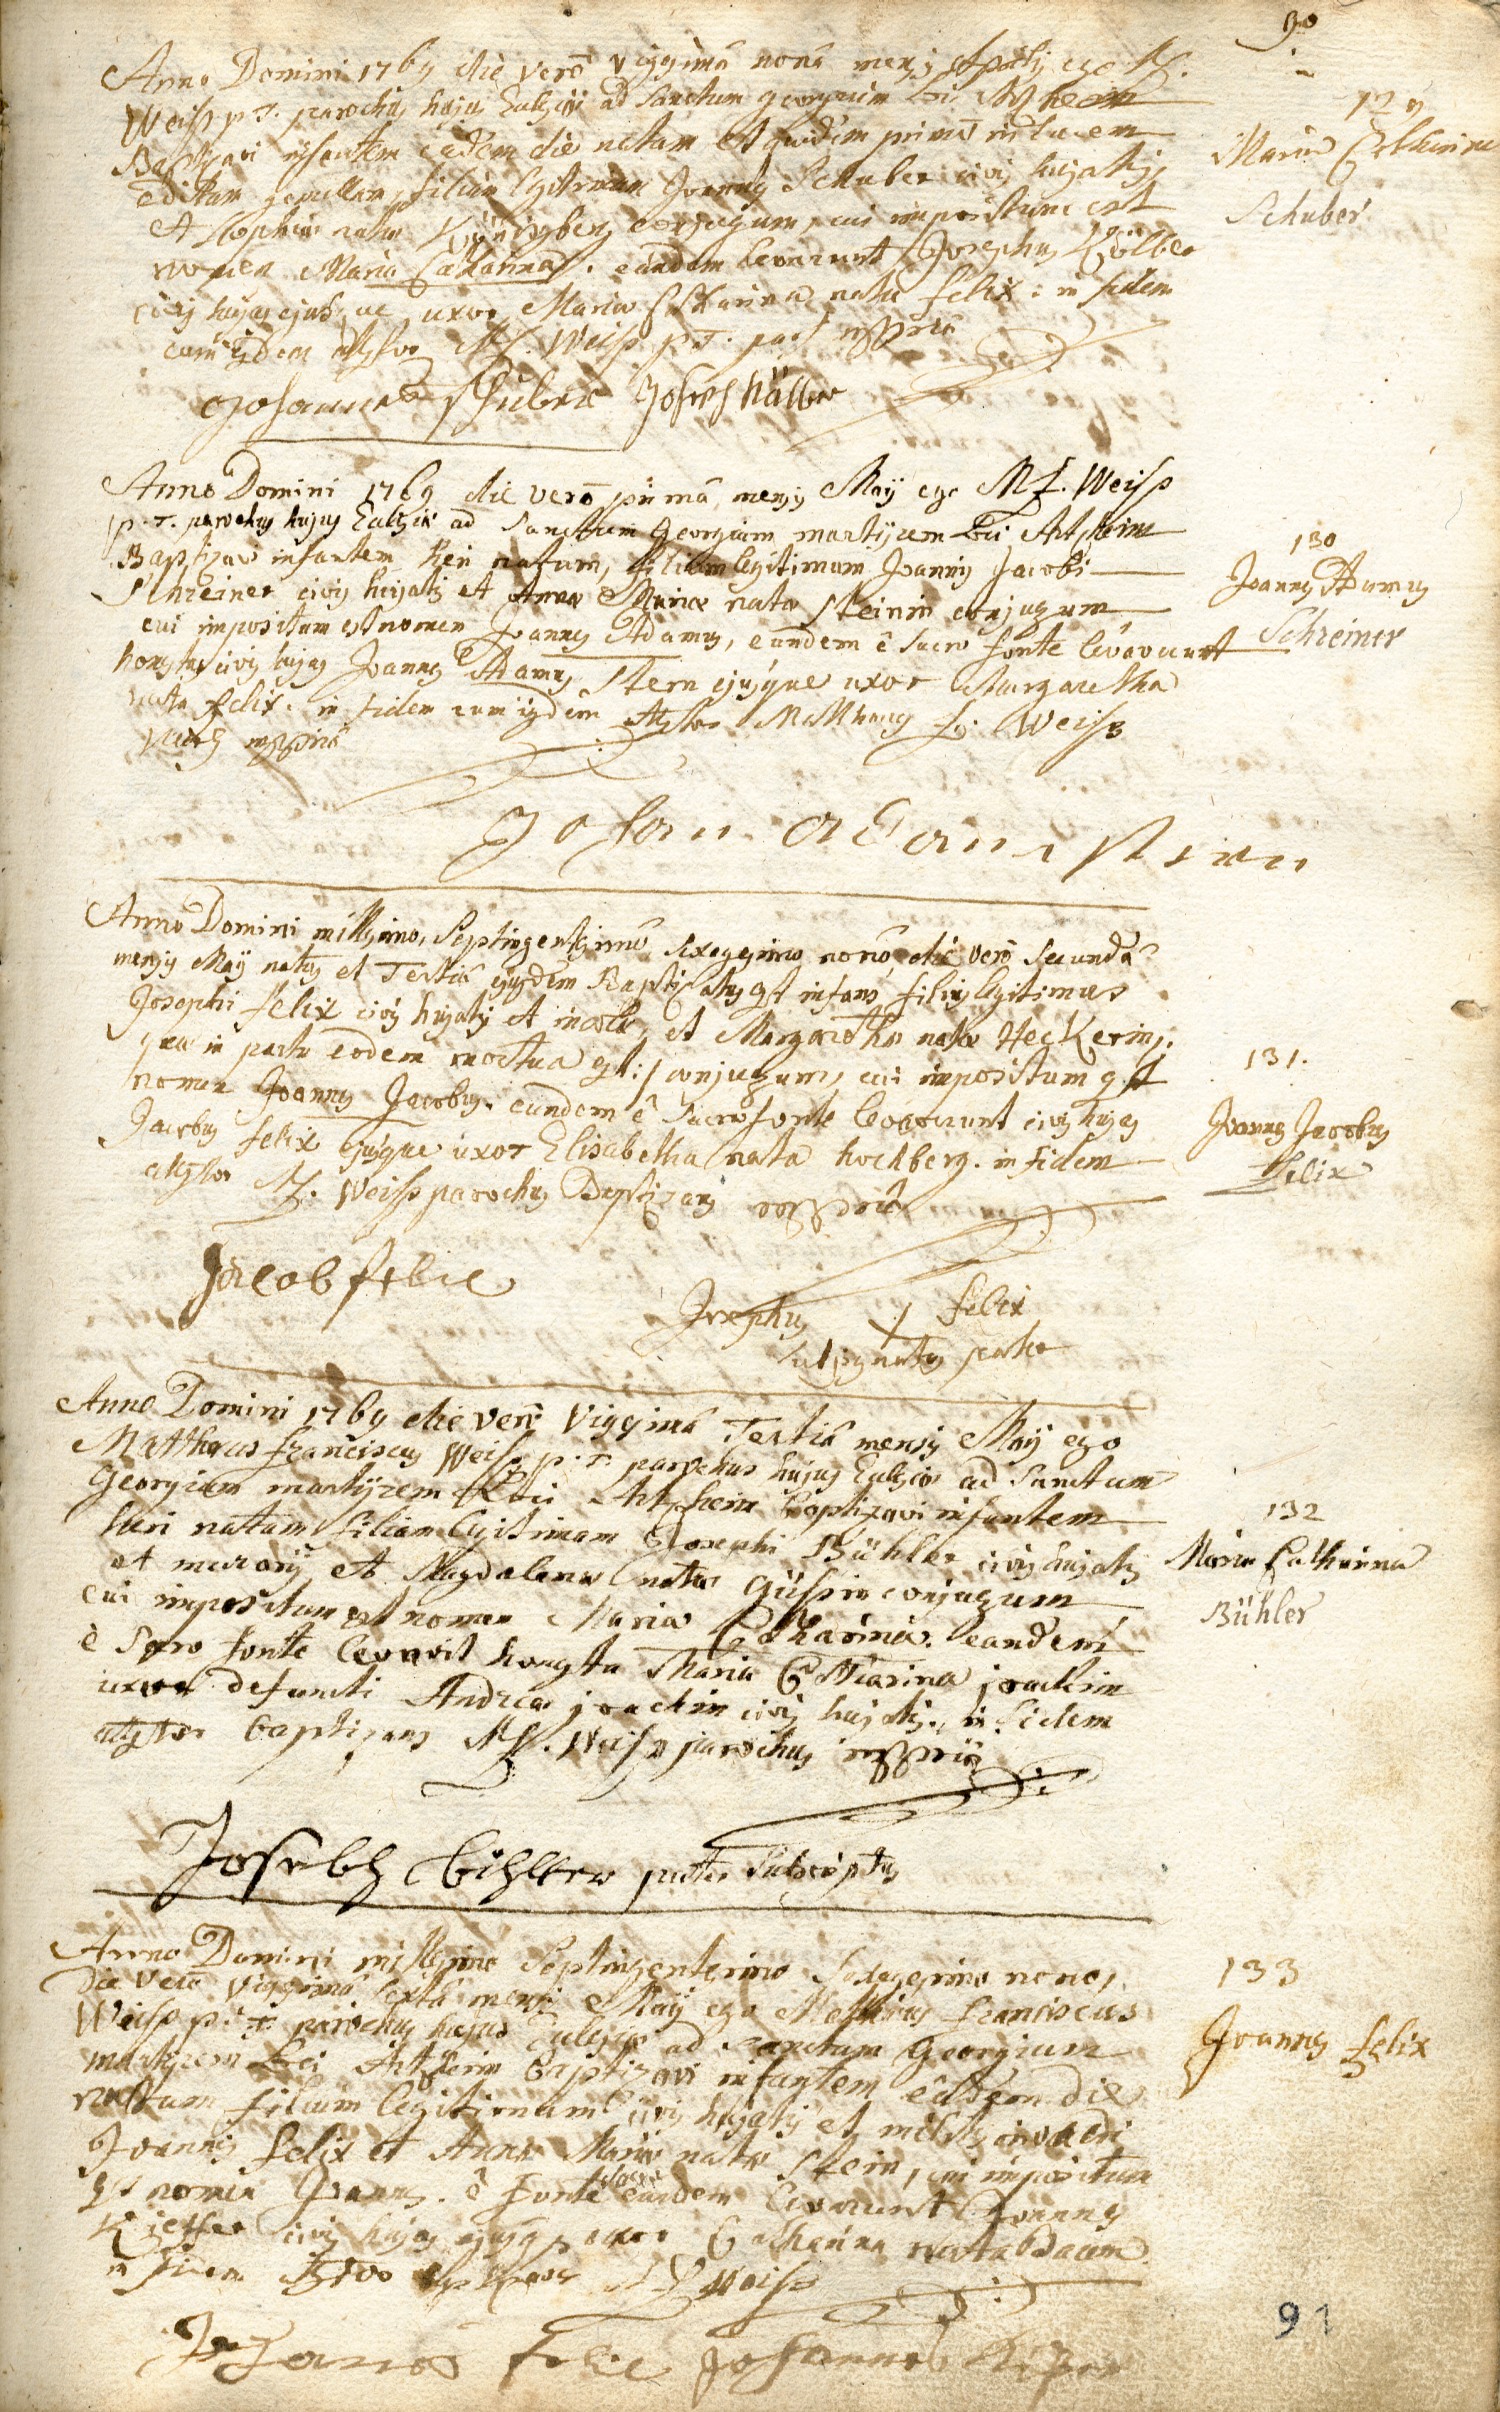 90
Anno Domini 1769 die verò vigesimâ nonâ mensis Aprilis ego M.
Weiss p. T. parochus hujus Ecclesiae ad Sanctum georgium loci Artzheim
Baptizavi infantem eadem die natam et quidem primò in lucem
editam gemellam, filiam legitimam Joannis Schuber civis hujatis
et Sophiae natae Königsberg conjugum, cui impositum est
nomen Maria Catharina. eandem levarunt Josephus Kölber
civis hujas ejusque uxor Maria Catharina nata felix: in fidem
cum iisdem attestor M. Weiss p. T. par. mppriâ
Johannes Schuber Joseph Källber
129
Maria Catharina
Schuber
Anno Domini 1769 die verò primâ mensis Maij ego M f. Weiss
p. T. parochus hujus Ecclesiae ad Sanctum Georgium martijrem loci Artzheim
Baptizavi infantem heri natum, filium legitimum Joannis Jacobi
Schreiner civis hujatis et Annae Mariae nata Steinin conjugum
cui impositum est nomen Joannes Adamus, eundem è sacro fonte levaverunt
honestus civis hujas Joannes Adamus Stern ejusque uxor Margaretha
nata felix. in fidem cum iisdem Attestor Matthaeus f. Weiss
mppriâ
130
Joannes Adamus
Schreiner
Johan adam stern
Anno Domini millesimo, Septingentesimo sexagesimo nono, die verò secundâ
mensis Maij natus et Tertiâ ejusdem Baptizatus est infans filius legitimus
Josephi felix civis hujatis et incolae, et Margaretha nata Heckerin,
quae in partu eodem mortua est :/ conjugum, cui impositum est
nomen Joannes Jacobus. eundem è Sacro fonte levarunt civis hujas
Jacobus felix ejusque uxor Elisabetha nata hochberg. in fidem
attestor M. Weiss parochus Baptizans mppriâ
131.
Joannes Jacobus
Felix
Jacob felic
Josephus + felix
subsignatus pater
Anno Domini 1769 die verò vigesimâ Tertiâ mensis Maij ego
Matthaeus franciscus Weiss p. T. parochus hujus Ecclesiae ad Sanctum
Georgium martijrem loci Artzheim baptizavi infantem
heri natam filiam legitimam Josephi Bühler civis hujatis
et murarij et Magdalena nata Güssin conjugum
cui impositum est nomen Maria Catharina. eandem
è Sacro fonte levavit honesta Maria Catharina joachim
uxor defuncti Andrea joachim civis hujatis, in fidem
attestor baptizans M f. Weiss parochus mppriâ
132
Maria Catharina
Bühler
Josebh bihller pater subscriptus
Anno Domini millesimo Septingentesimo Sexagesimo nono,
die verò vigesimâ sextâ mensis Maij ego Matthaeus franciscus
Weiss p. T. parochus hujus Ecclesiae ad Sanctum Georgium
martijrem loci Artzheim baptizavi infantem eâdem die
natum filium legitimum civis hujatis et militis invalidi
Joannis felix et Anna Maria nata Stein, cui impositum
est nomen Joannes. è fonte sacro eundem levarunt Joannes
Kieffer civis hujas ejusq uxor Catharina nata Baum
in fidem M f Weiss
133
Joannes felix
Johannes felic Johannes Kifer
91